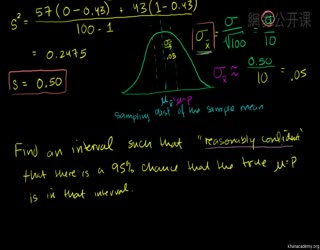 S² = 57(0-0.43) + 43(1-0.43)
100-1
= 0.2475
S = 0.50
σx̄
.05
μx̄=μ=p
sampling dist of the sample mean
σx̄ = σ/√100 = σ/10
σx̄ ≈ 0.50/10 = .05
公开课
Find an interval such that "reasonably confident"
that there is a 95% chance that the true μ=p
is in that interval.
khanacademy.org